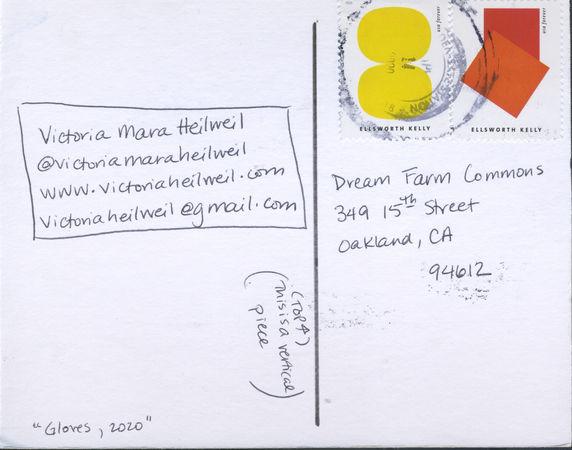 Victoria Mara Heilweil
@victoriamaraheilweil
www.victoriaheilweil.com
victoriaheilweil@gmail.com
(TOP↑)
(This is a vertical)
piece
"Gloves, 2020"
USA FOREVER
ELLSWORTH KELLY
USA FOREVER
ELLSWORTH KELLY
Dream Farm Commons
349 15th Street
Oakland, CA
94612